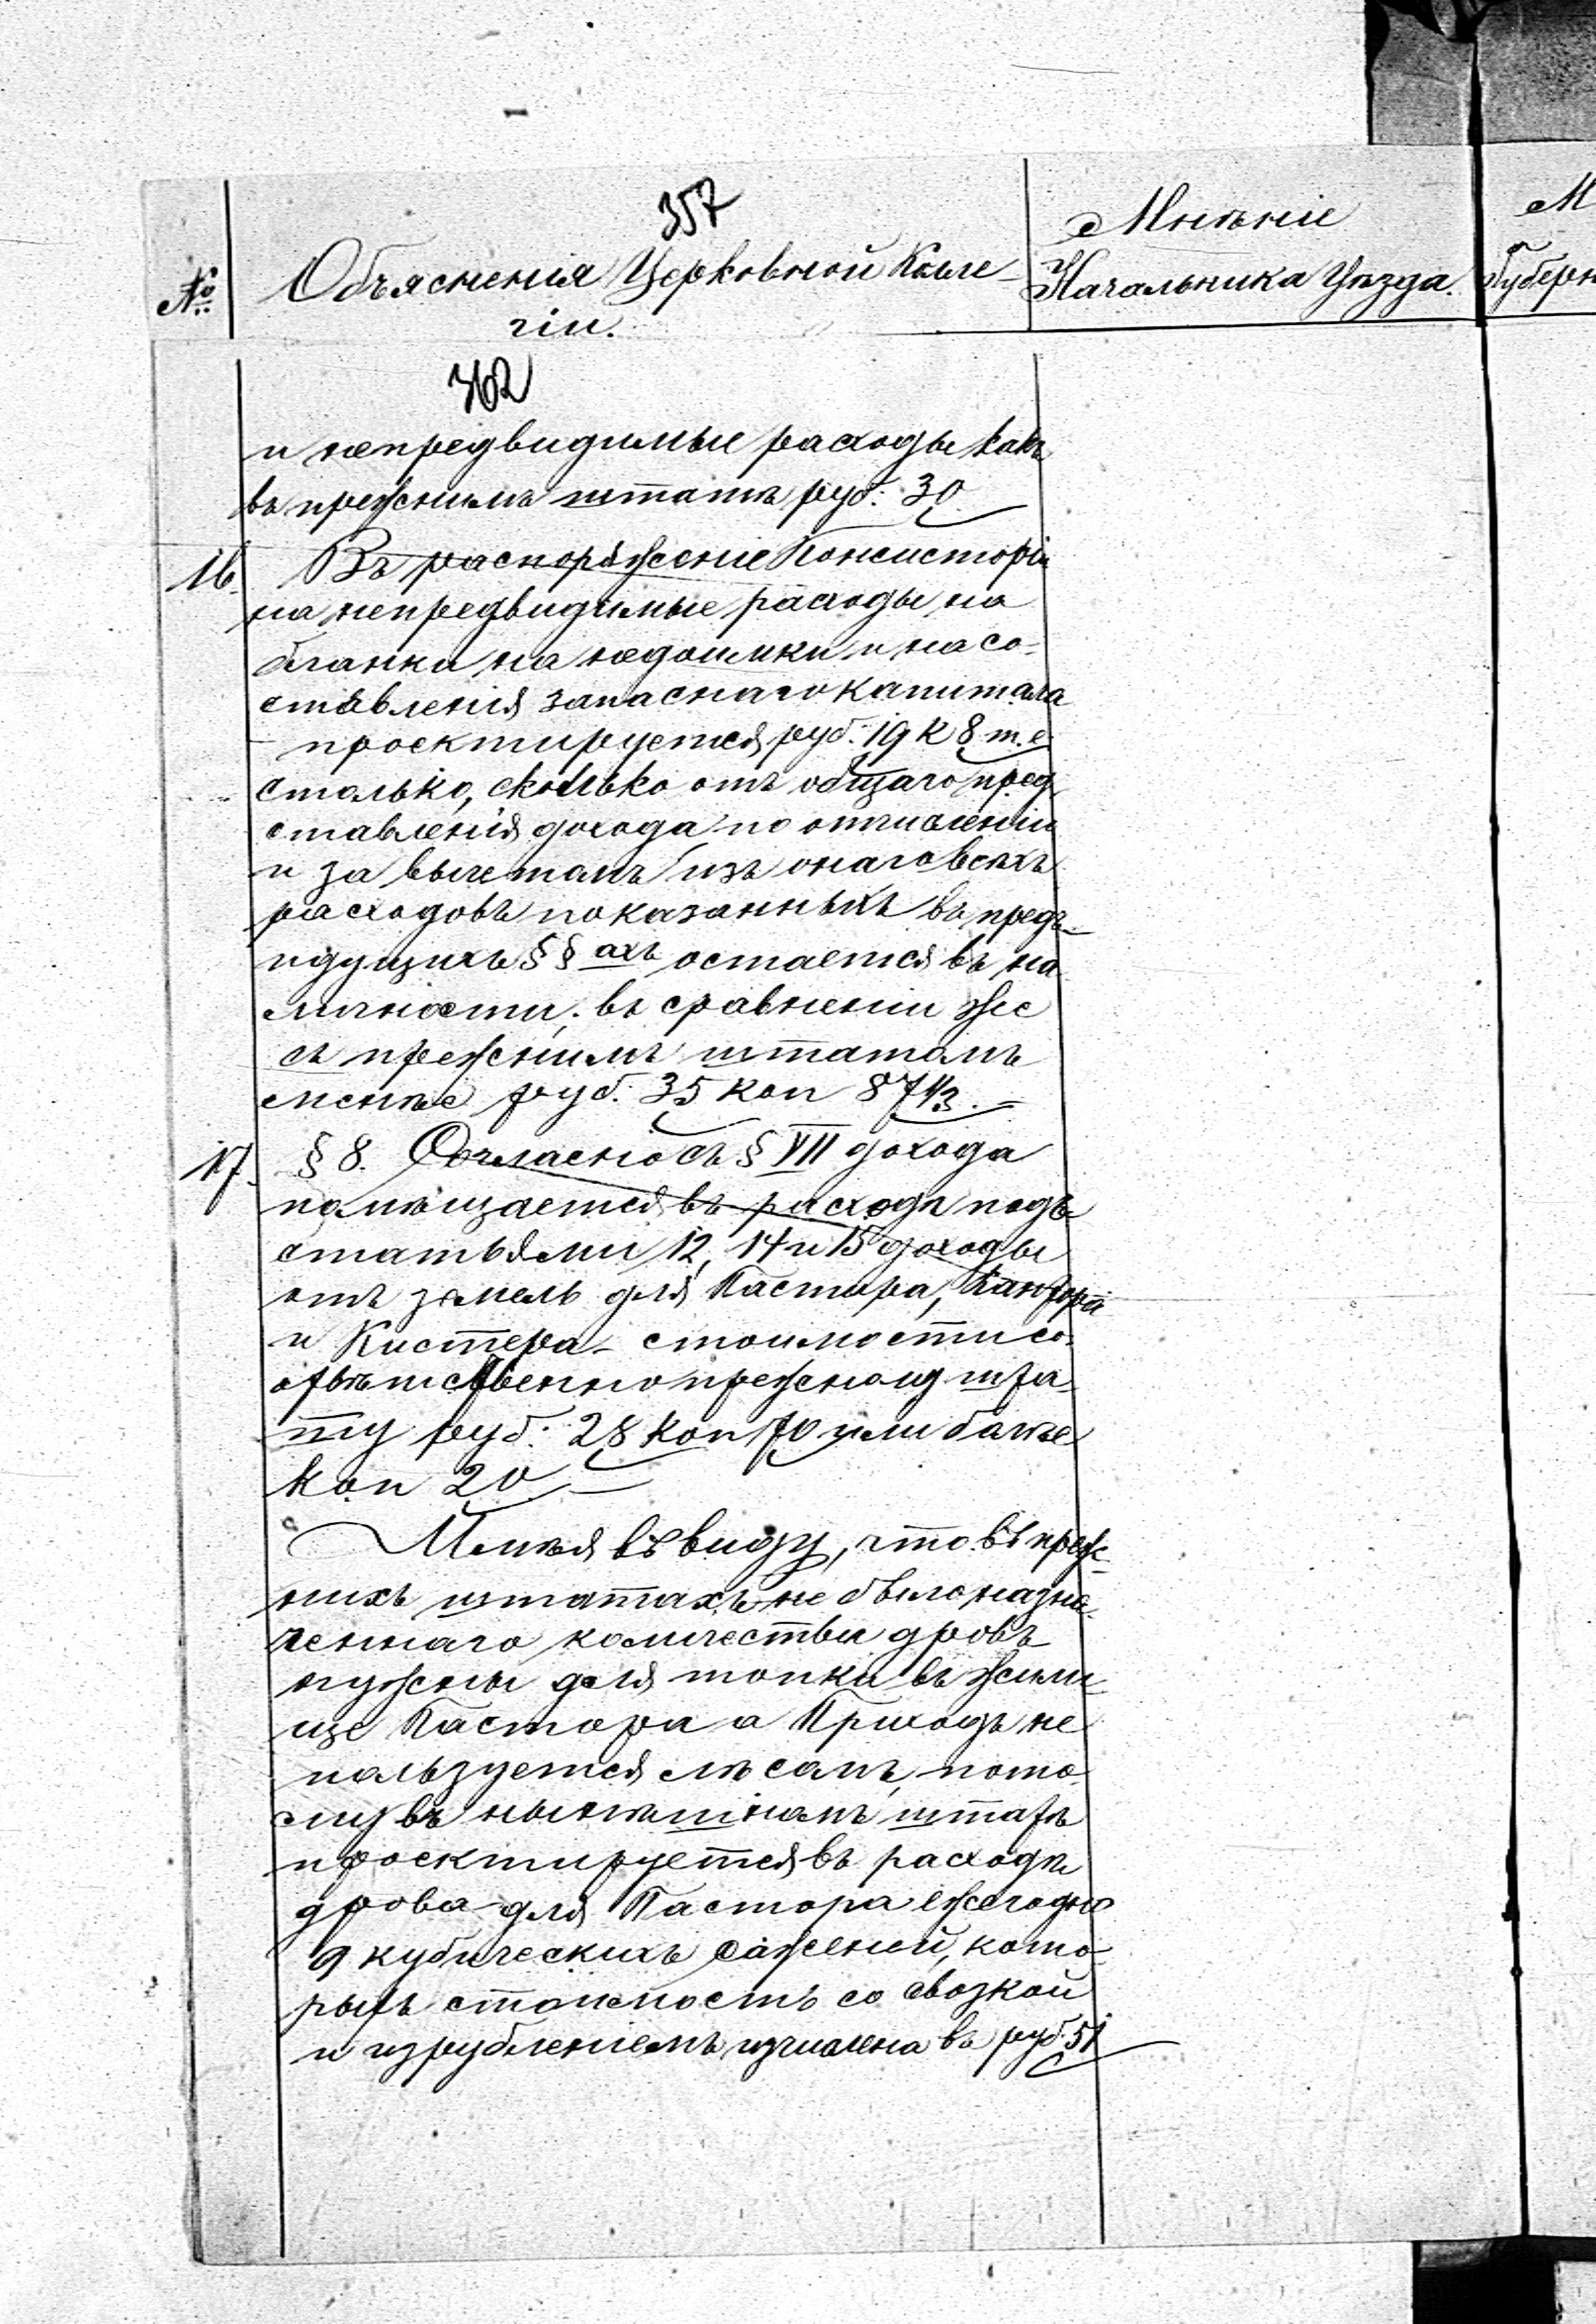 357
№
Объясненія Церковной Колле-
гіи.
Мнѣніе
Начальника Уѣзда.
М
Губерн
362
и непредвидимые расходы какъ
въ прежнимъ штатѣ руб: 30
16. Въ распоряженіе Консисторіи
на непредвидимые расходы, на
бланки на недоимки и на со-
ставленія запаснаго капитала
- проектируется руб: 19 к 8 т. е.
столько, сколько отъ общаго пред
ставленія дохода по отчисленіи
и за вычетомъ изъ онаго всѣхъ
расходовъ показанныхъ въ предъ-
идущихъ §§ ахъ остается въ на
личности; въ сравненіи же
съ прежнимъ штатомъ
менѣе руб. 35 коп 87 1/2. =
17. § 8. Согласно съ § VII дохода
помѣщается въ расходъ подъ
статьями 12, 14 и 15 доходы
отъ земель для Пастора, Кантора
и Кистера - стоимости со-
отвѣтственно прежному шта-
ту руб: 28 коп 70 или болѣе
коп 20 —
Имѣя въ виду, что въ преж-
нихъ штатахъ не было назна-
ченнаго количества дровъ
нужны для топки въ жили-
ще Пастора а Приходъ не
пользуется лѣсомъ, пото-
му въ нынѣшнемъ штатѣ
проектируется въ расходъ
дрова для Пастора ежегодно
9 кубическихъ саженей, кото-
рыхъ стоимость со свозкой
и изрубленіемъ изчислена въ руб: 51